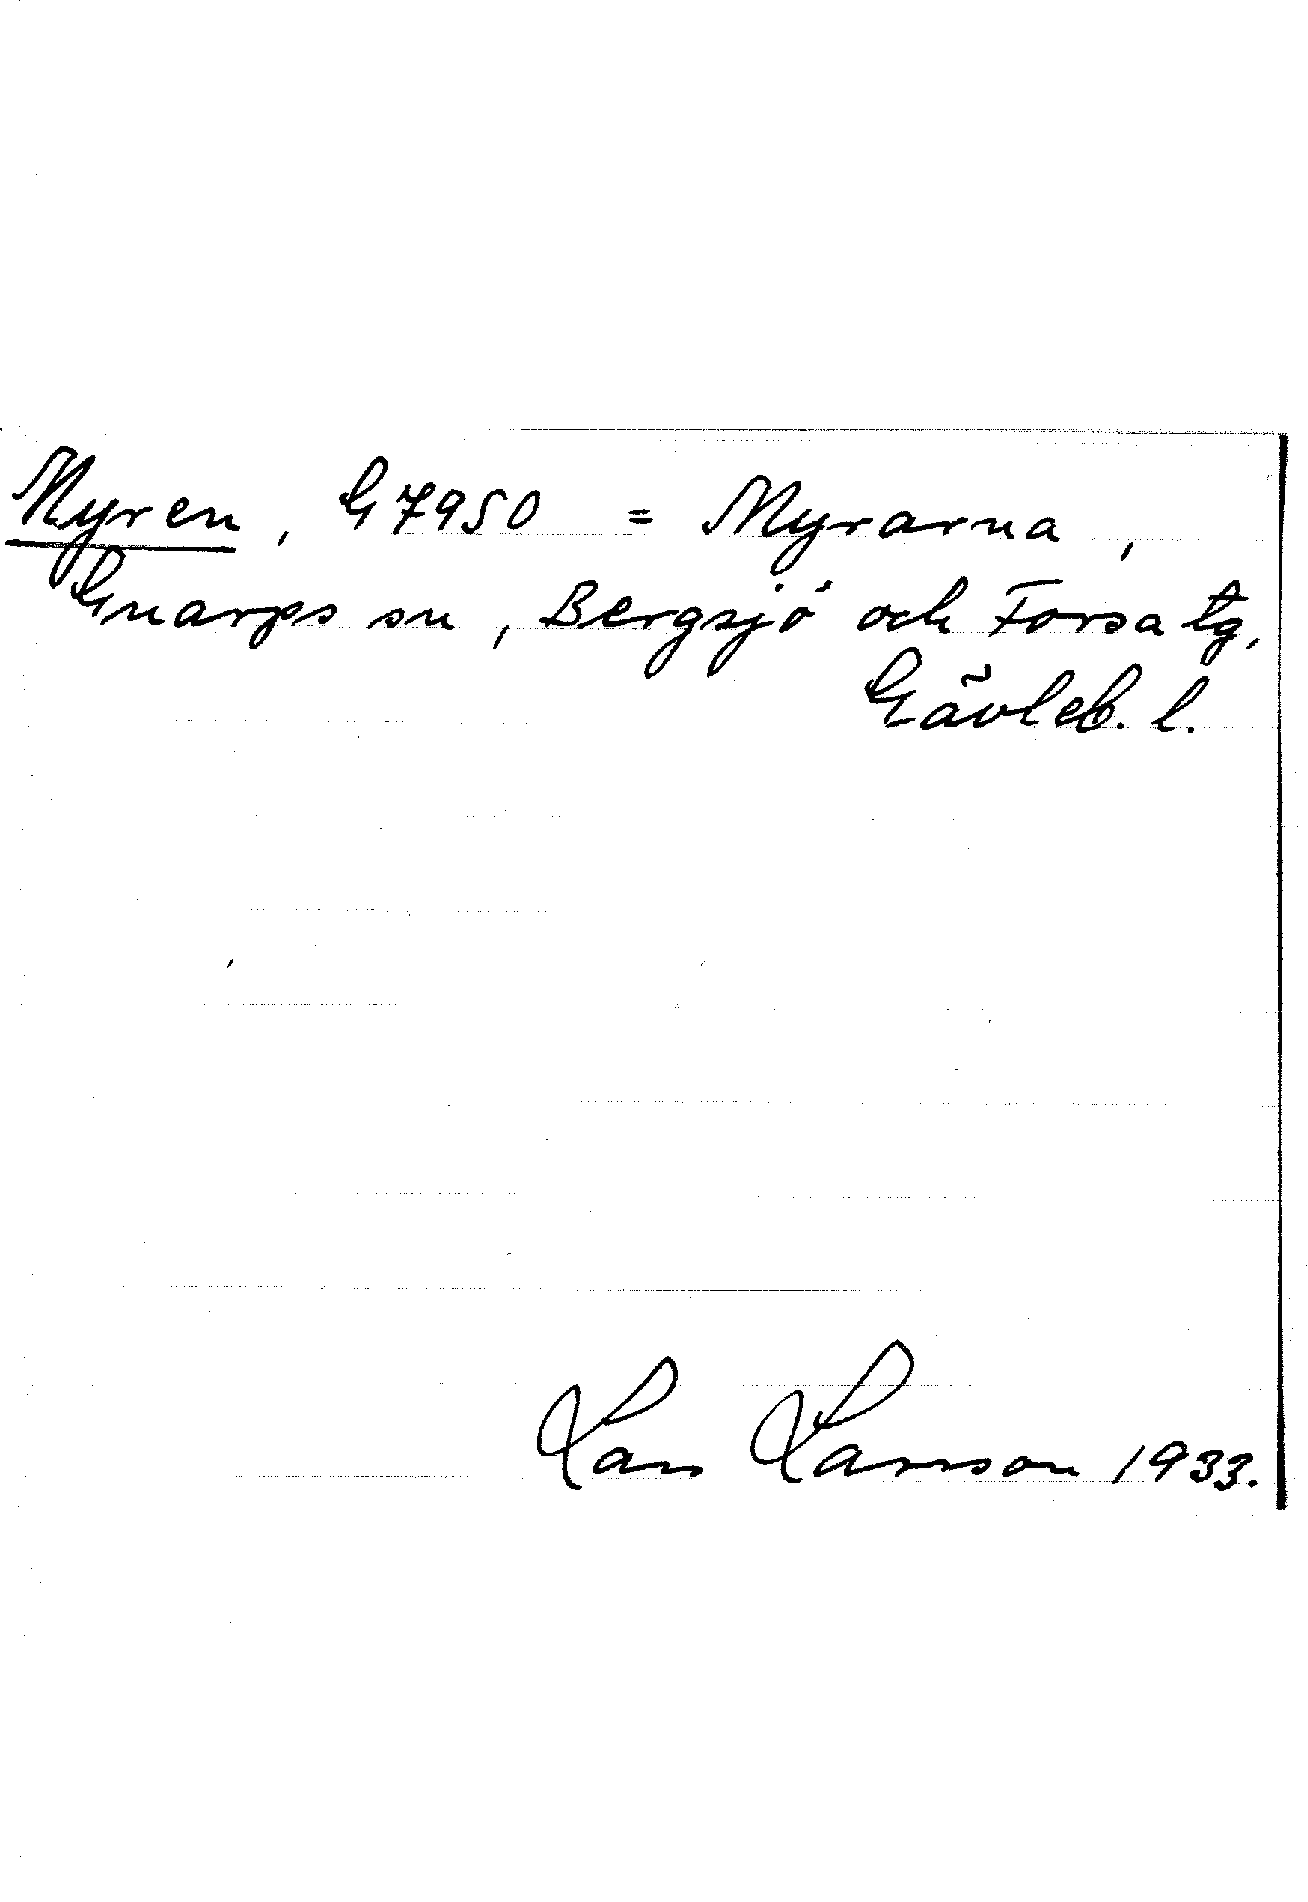 Myren, G 7950 = Myrarna,
Gnarps sn, Bergsjö och Forsa tg,
Gävleb. l.
Lars Larsson 1933.